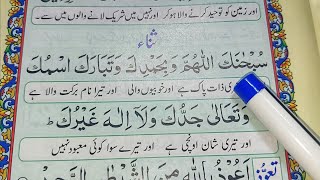 اور زمین کو توحید کرنے والا ہو کر اور نہیں میں شریک لانے والوں میں سے۔
ثناء
سُبْحٰنَكَ اللّٰهُمَّ وَبِحَمْدِكَ وَتَبَارَكَ اسْمُكَ
ذات پاک ہے اور خوبیوں والی اور تیرا نام برکت والا ہے
وَتَعَالٰى جَدُّكَ وَلَا اِلٰهَ غَيْرُكَ
اور تیری شان اونچی ہے اور تیرے سوا کوئی معبود نہیں
تعوّذ
اَعُوْذُ بِاللّٰهِ مِنَ الشَّيْطٰنِ الرَّجِيْمِ